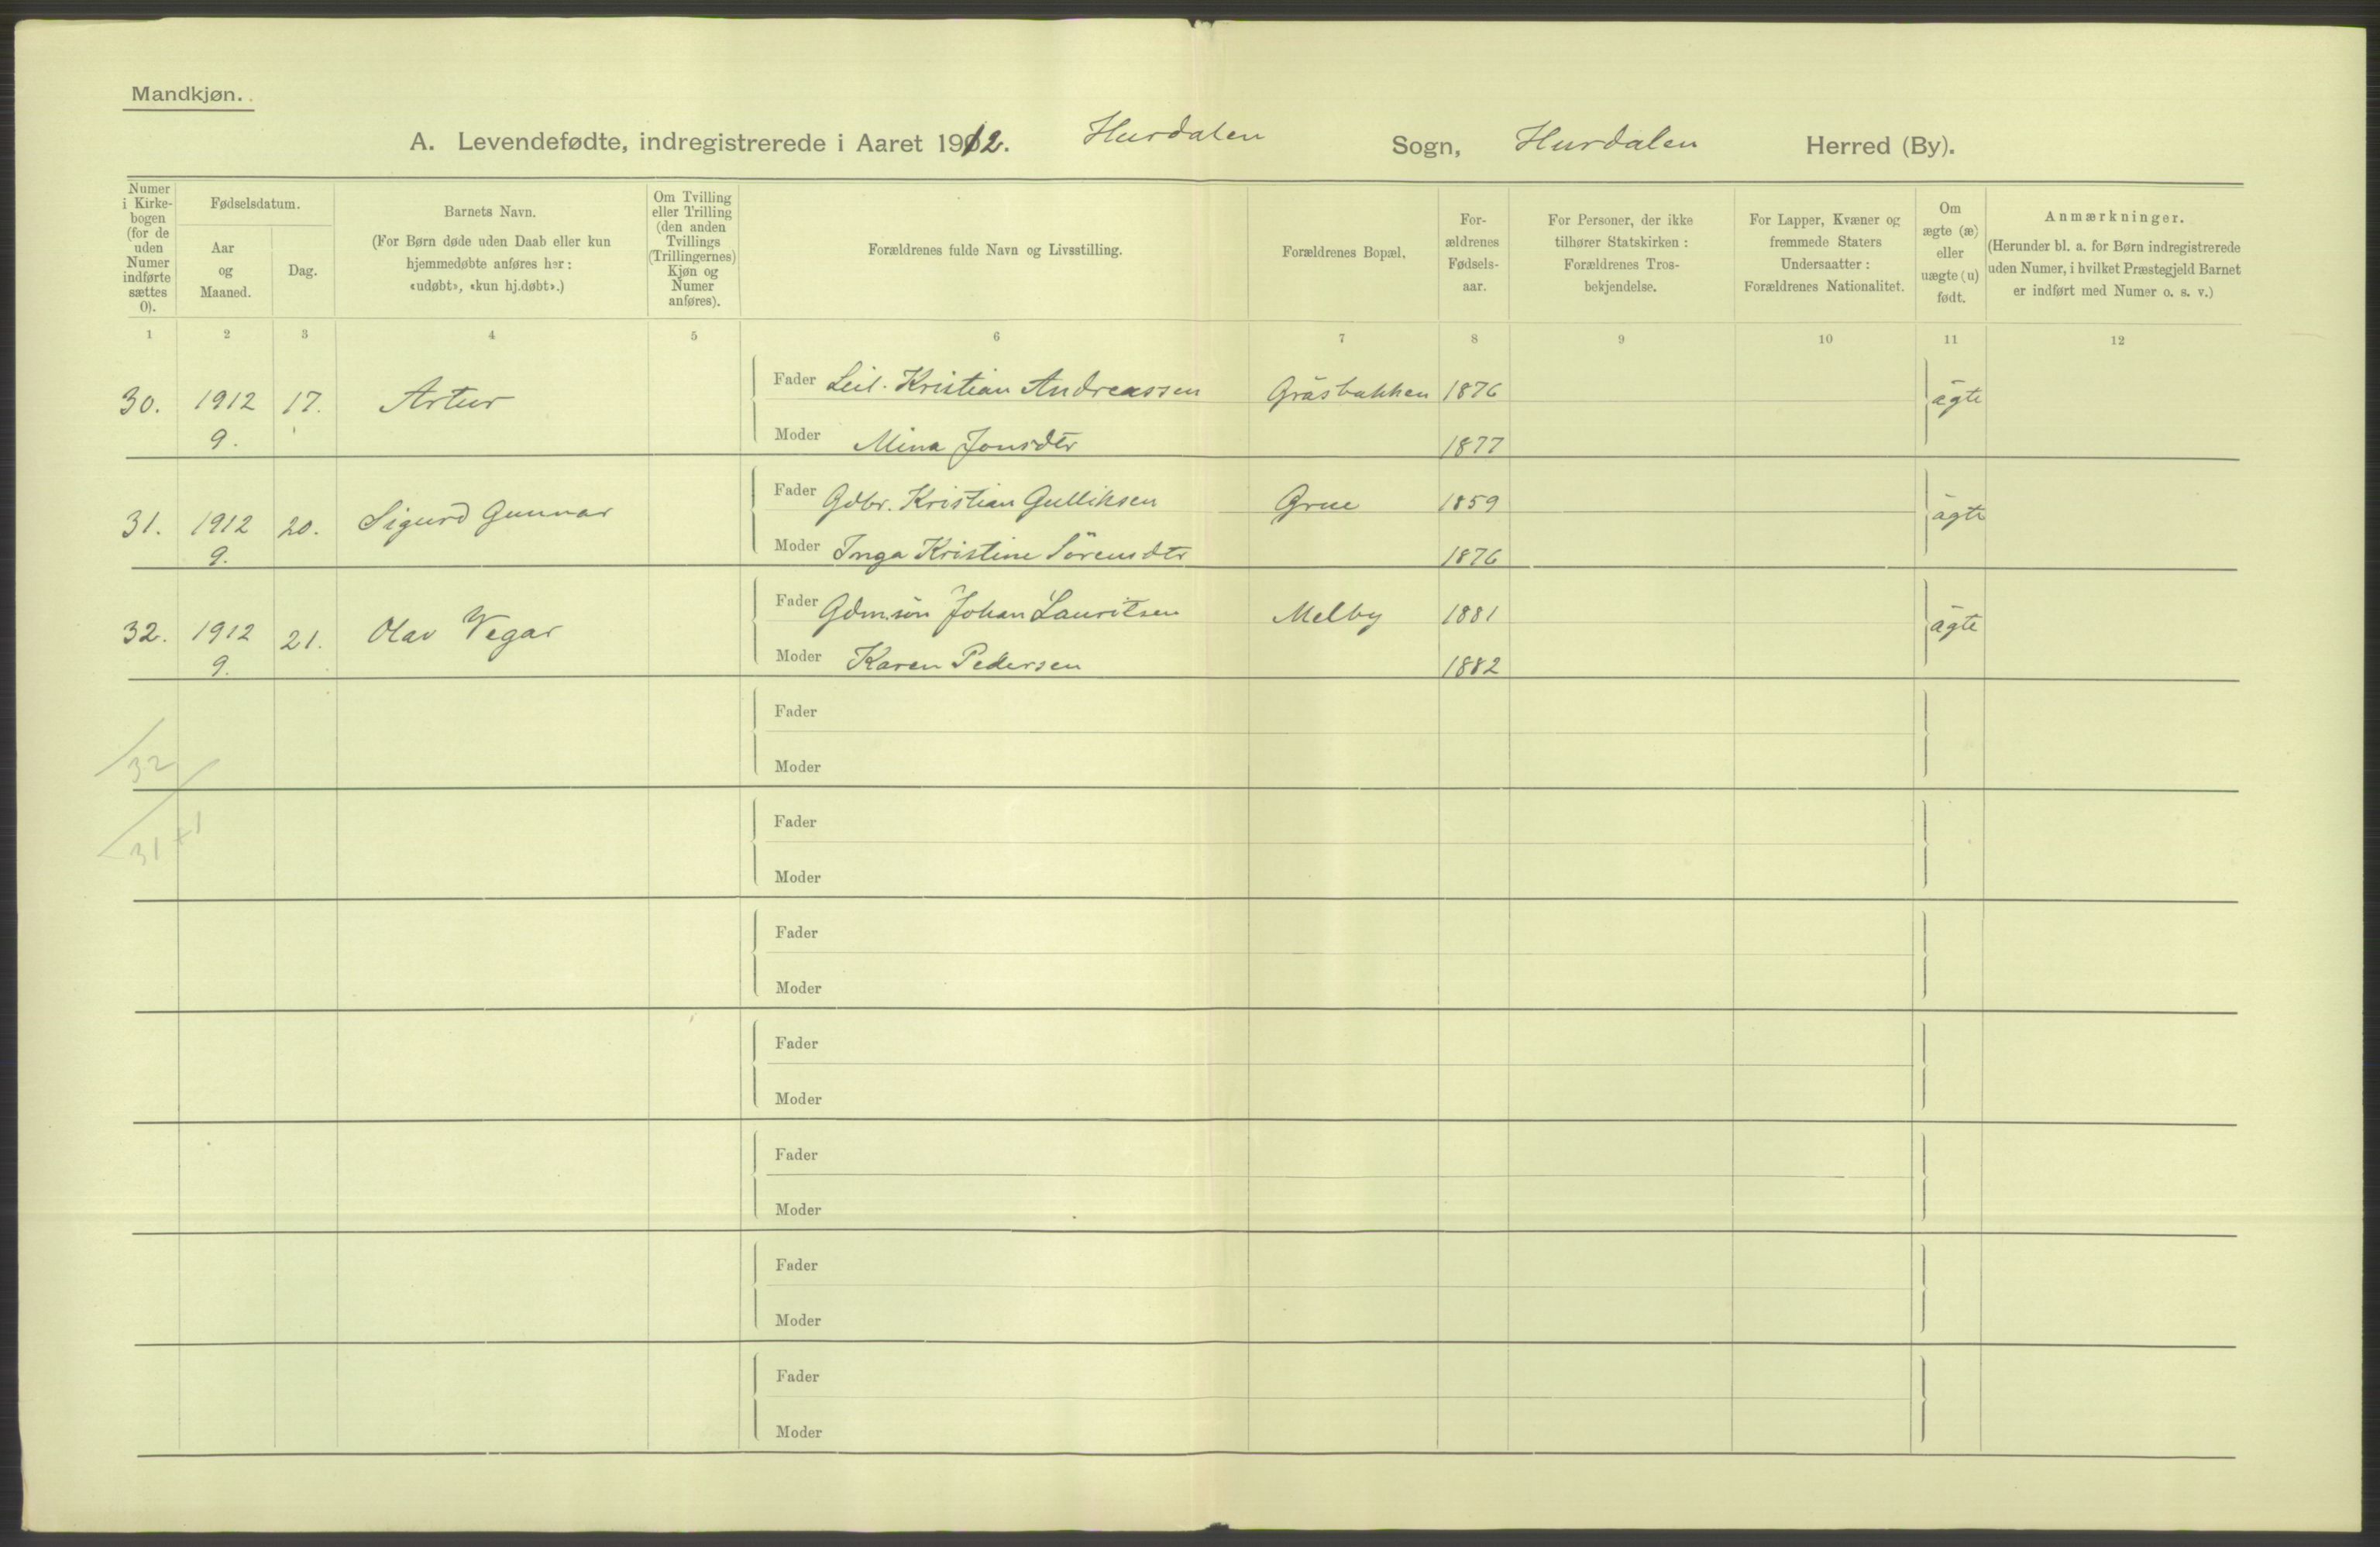 Mandkjøn.
A. Levendefødte, indregistrerede i Aaret 1912. Hurdalen Sogn, Hurdalen Herred (By).
Numer i Kirke-bogen (for de uden Numer indførte sættes 0).
Fødselsdatum.
Aar og Maaned.
Dag.
Barnets Navn.
(For Børn døde uden Daab eller kun hjemmedøbte anføres her: «udøbt», «kun hj.døbt».)
Om Tvilling eller Trilling (den anden Tvillings (Trillingernes) Kjøn og Numer anføres).
Forældrenes fulde Navn og Livsstilling.
Forældrenes Bopæl.
For-ældrenes Fødsels-aar.
For Personer, der ikke tilhører Statskirken: Forældrenes Tros-bekjendelse.
For Lapper, Kvæner og fremmede Staters Undersaatter: Forældrenes Nationalitet.
Om ægte (æ) eller uægte (u) født.
Anmærkninger.
(Herunder bl. a. for Børn indregistrerede uden Numer, i hvilket Præstegjeld Barnet er indført med Numer o. s. v.)
1 2 3 4 5 6 7 8 9 10 11 12
30. 1912 17. Artur Fader Leil. Kristian Andreassen Gräsbakken 1876 ägte
9. Moder Mina Jonsdtr 1877
31. 1912 20. Sigurd Gunnar Fader Gdbr. Kristian Gulliksen Grue 1859 ägte
9. Moder Inga Kristine Sörensdtr 1876
32. 1912 21. Olav Vegar Fader Gdm.sön Johan Lauritsen Melby 1881 ägte
9. Moder Karen Pedersen 1882
Fader
32 Moder
Fader
31+1
Moder
Fader
Moder
Fader
Moder
Fader
Moder
Fader
Moder
Fader
Moder